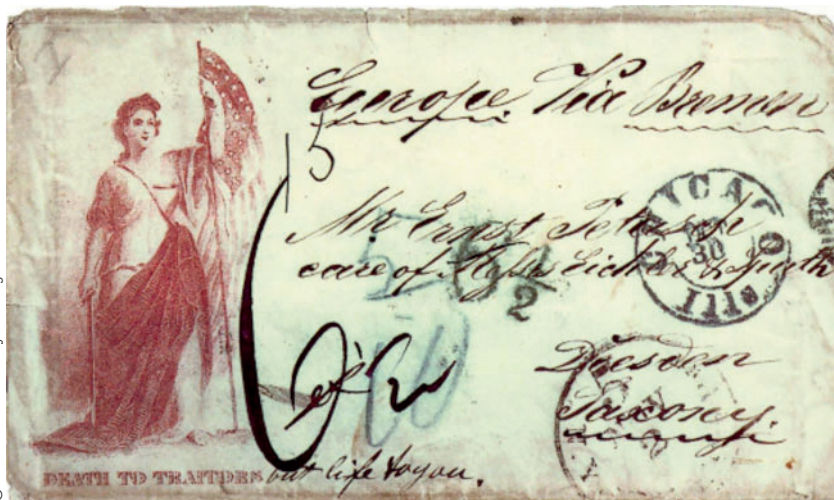 Europe Via Bremen
15
Mr Ernst
care of
CHICAGO
30
Ills
5
1/2
Dresden
Saxony
DEATH TO TRAITORS but life to you.